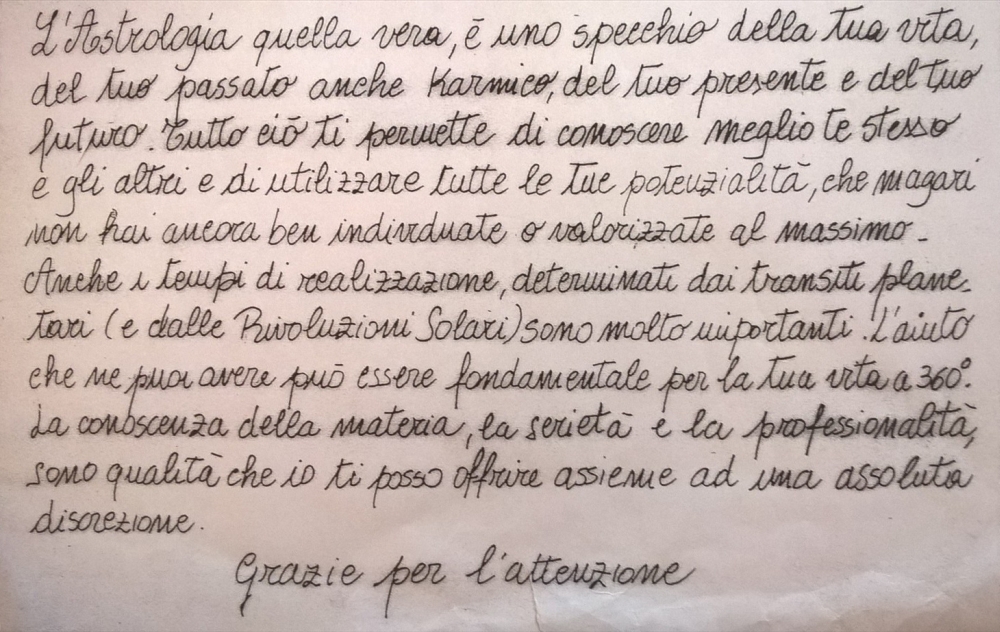 L'Astrologia quella vera, è uno specchio della tua vita,
del tuo passato anche Karmico, del tuo presente e del tuo
futuro. Tutto ciò ti permette di conoscere meglio te stesso
e gli altri e di utilizzare tutte le tue potenzialità, che magari
non hai ancora ben individuate o valorizzate al massimo.
Anche i tempi di realizzazione, determinati dai transiti plane-
tari (e dalle Rivoluzioni Solari) sono molto importanti. L'aiuto
che ne puoi avere può essere fondamentale per la tua vita a 360°.
La conoscenza della materia, la serietà e la professionalità,
sono qualità che io ti posso offrire assieme ad una assoluta
discrezione.
Grazie per l'attenzione